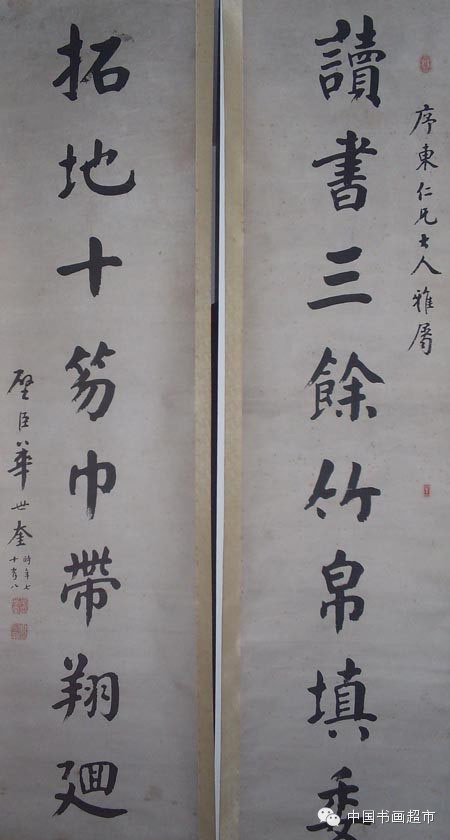 序東仁兄大人雅屬
讀書三餘竹帛填委
拓地十笏巾帶翔廻
璧臣華世奎
時年七
十有八
中国书画超市